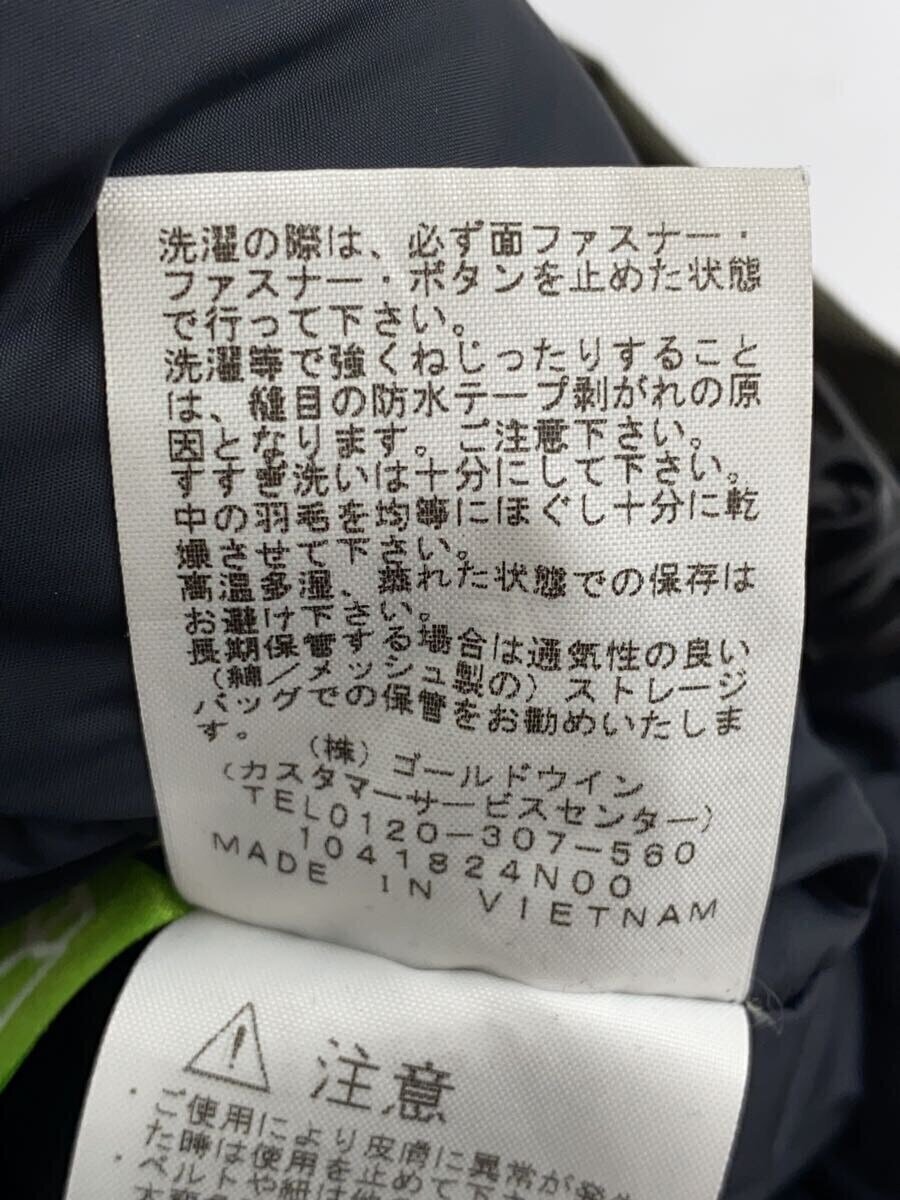 洗濯の際は、必ず面ファスナー・
ファスナー・ボタンを止めた状態
で行って下さい。
洗濯等で強くねじったりすること
は、縫目の防水テープ剥がれの原
因となります。ご注意下さい。
すすぎ洗いは十分にして下さい。
中の羽毛を均等にほぐし十分に乾
燥させて下さい。
高温多湿、蒸れた状態での保存は
お避け下さい。
長期保管する場合は通気性の良い
(綿/メッシュ製の)ストレージ
バッグでの保管をお勧めいたしま
す。
(株)ゴールドウイン
(カスタマーサービスセンター)
TEL0120-307-560
1041824N00
MADE IN VIETNAM
注意
・ご使用により皮膚に異常が発生
た時は使用を止めて下さ
・ベルトや紐は他